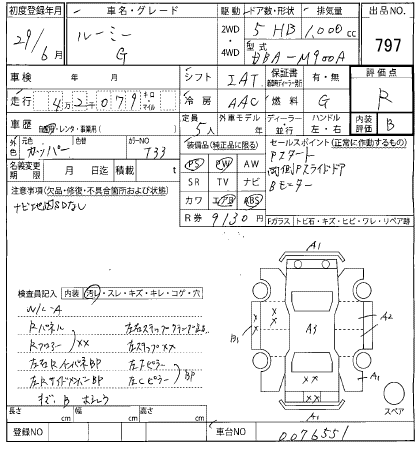 初度登録年月 車名・グレード 駆動 ドア数・形状 排気量 出品NO.
29/6月 ルーミー G 2WD・4WD 5 HB 1,000cc 797
型式 DBA-M900A
車検 年 月 シフト IAT 保証書 有・無 評価点
走行 4万2千079 キロ マイル 冷房 AAC 燃料 G R
車歴 自家用・レンタ・事業用( ) 定員 5人 外車モデル 年 ディーラー・並行 ハンドル 左・右 内装評価 B
外色 元色 カッパー 色替 カラーNO T33 装備品(純正品に限る) セールスポイント(正常に作動するもの)
名義変更期限 月 日迄 積載 t PS PW AW Pスタート
注意事項(欠品・修復・不具合箇所および状態) SR TV ナビ 両側Pスライドドア
ナビ地図SDなし カワ エアB ABS Bモニター
R券 9130円 Fガラス トビ石・キズ・ヒビ・ワレ・リペア跡
検査員記入 内装 汚レ・スレ・キズ・キレ・コゲ・穴
A1
W/L A
Rパネル
Rフロアー ××
左右ステップ××
左右RインパネBP
左右Rサイドメンバー BP
左Cピラー BP
キズ、B
B1 A3 A2
A1
A1
スペア
長さ cm 幅 cm 高さ cm
登録NO 車台NO 0076551